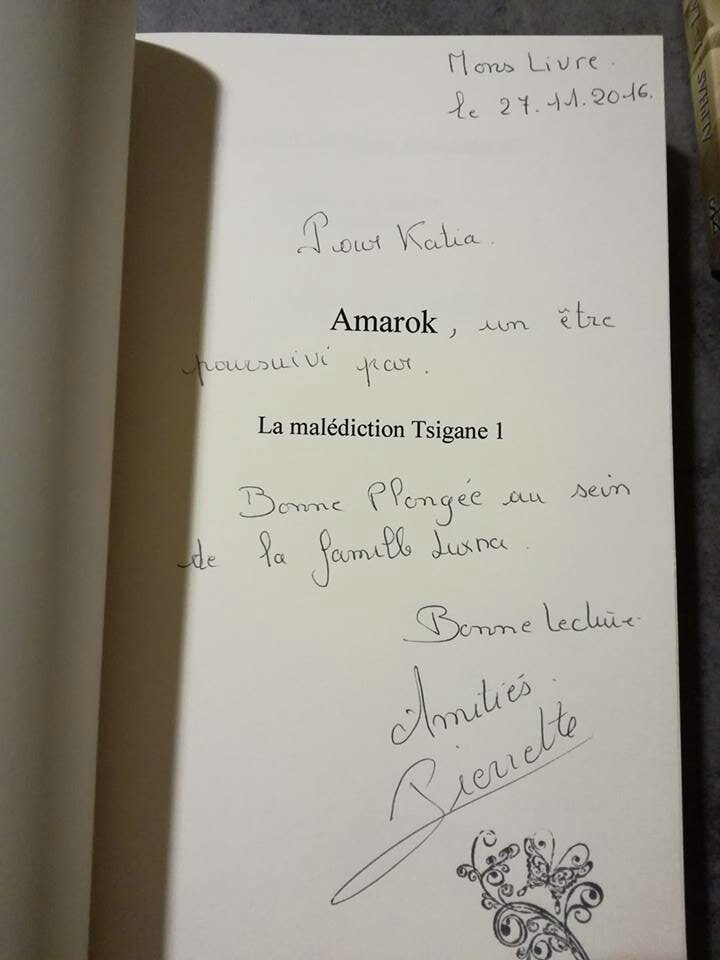 Mons Livre.
le 27.11.2016.
Pour Katia.
Amarok, un être
poursuivi par.
La malédiction Tsigane 1
Bonne Plongée au sein
de la famille Luxna.
Bonne Lecture
Amitiés.
Pierrette